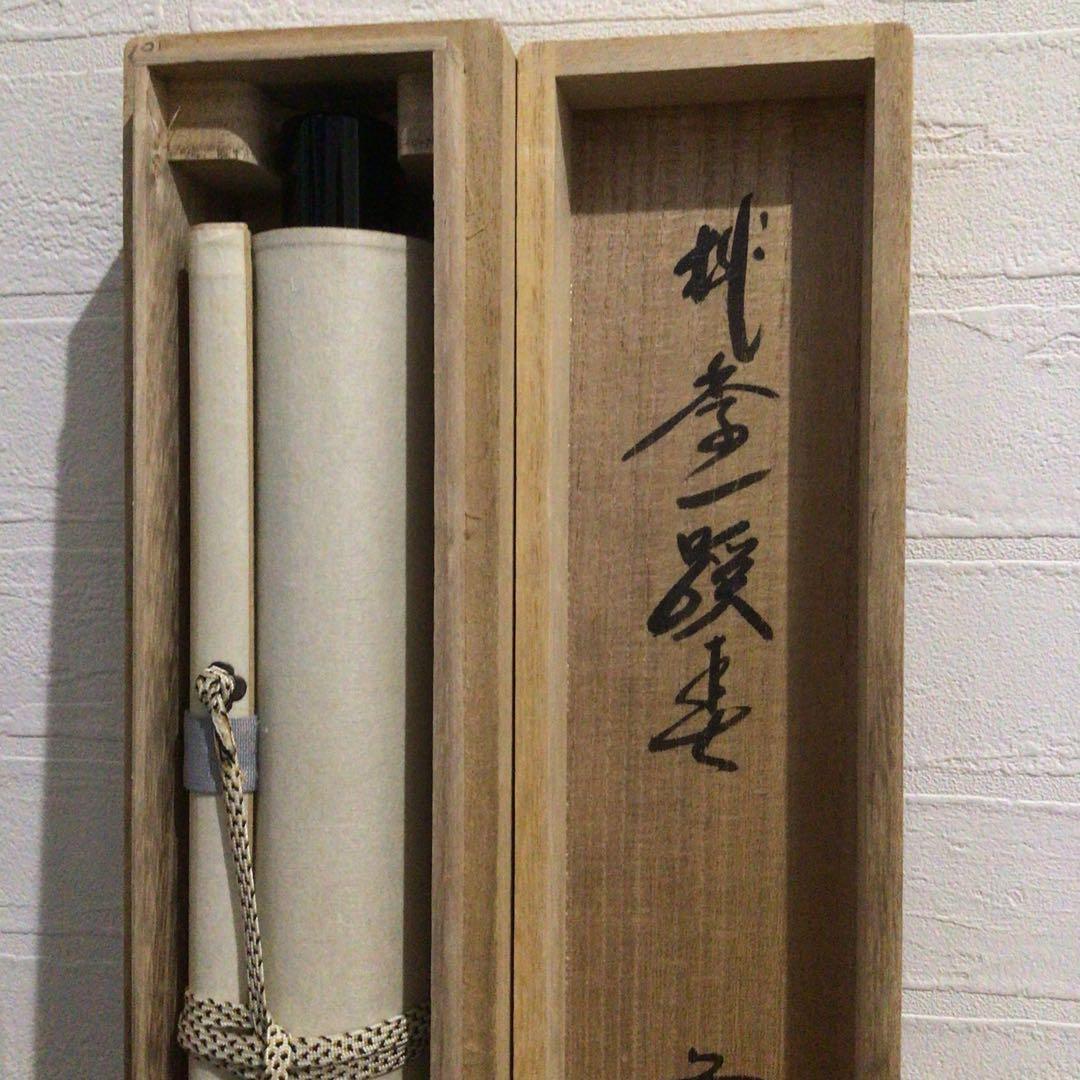 桃李一蹊春